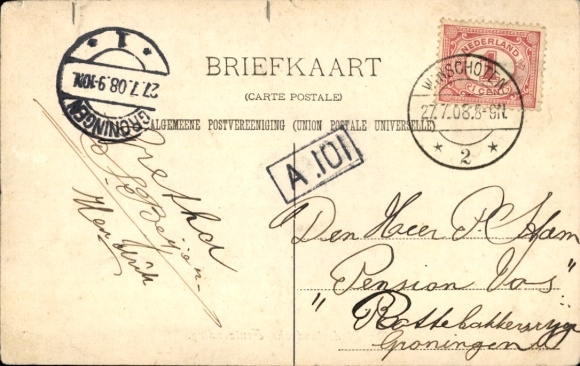 BRIEFKAART
(CARTE POSTALE)
ALGEMEENE POSTVEREENIGING (UNION POSTALE UNIVERSELLE)
GRONINGEN
27.7.08.9-10N.
1
NEDERLAND
1 CENT
WINSCHOTEN
27.7.08.8-9N.
2
A.101
Hendrik
Den Heer P.C. Ham
"Pension Vos"
Pottebakkersrijge
Groningen